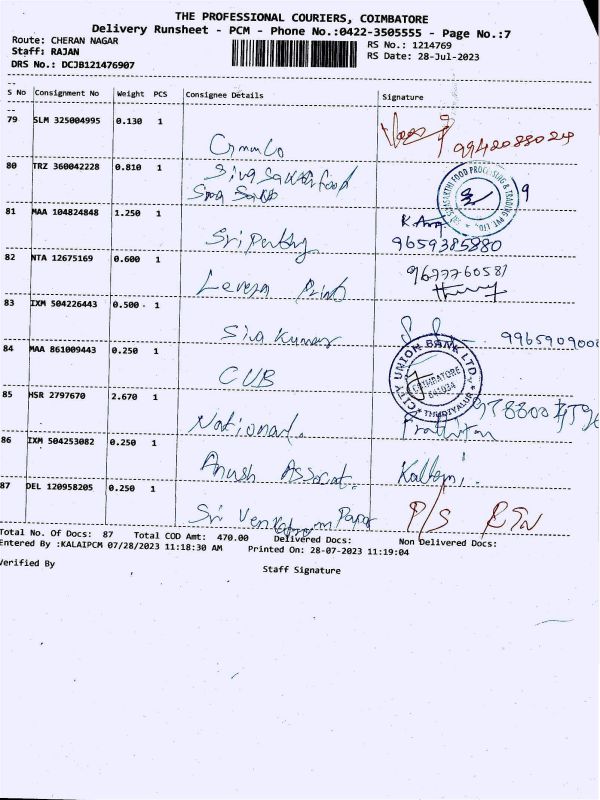 THE PROFESSIONAL COURIERS, COIMBATORE
Delivery Runsheet - PCM - Phone No.:0422-3505555 - Page No.:7
Route: CHERAN NAGAR
RS No.: 1214769
Staff: RAJAN
RS Date: 28-Jul-2023
DRS No.: DCJB121476907
S No Consignment No Weight PCS Consignee Details Signature
79 SLM 325004995 0.130 1
9942088024
80 TRZ 360042228 0.810 1
Siva Sakthi food
81 MAA 104824848 1.250 1
Sri Parthy
9659385880
82 NTA 12675169 0.600 1
9677760581
Print
83 IXM 504226443 0.500 1
Siva Kumar
84 MAA 861009443 0.250 1
CUB
CITY UNION BANK LTD
COIMBATORE
641034
THUDIYALUR
85 HSR 2797670 2.670 1
National.
86 IXM 504253082 0.250 1
Anush Associat.
87 DEL 120958205 0.250 1
Sri Paper
P/S
Total No. Of Docs: 87 Total COD Amt: 470.00 Delivered Docs: Non Delivered Docs:
Entered By :KALAIPCM 07/28/2023 11:18:30 AM Printed On: 28-07-2023 11:19:04
Verified By
Staff Signature